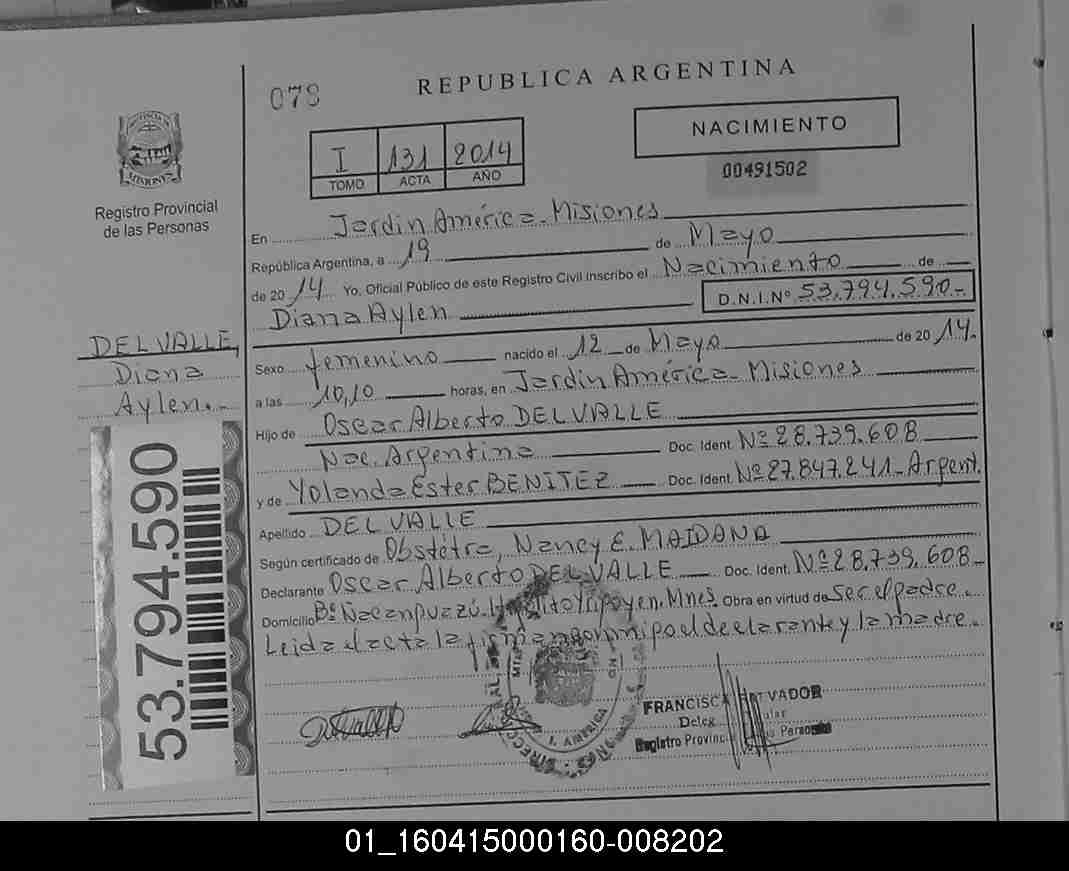 078
REPUBLICA ARGENTINA
PROVINCIA DE
MISIONES
Registro Provincial
de las Personas
I 131 2014
TOMO ACTA AÑO
NACIMIENTO
00491502
En Jardín América - Misiones
República Argentina, a 19 de Mayo
de 2014 Yo, Oficial Público de este Registro Civil Inscribo el Nacimiento de
Diana Aylen D.N.I.Nº 53.794.590-
DEL VALLE,
Diana
Aylen.-
Sexo femenino nacido el 12 de Mayo de 2014.
a las 10,10 horas, en Jardín América - Misiones
Hijo de Oscar Alberto DEL VALLE
Nac. Argentina Doc. Ident. Nº 28.739.608
y de Yolanda Ester BENITEZ Doc. Ident. Nº 27.847.241 - Argent.
Apellido DEL VALLE
Según certificado de Obstétra, Nancy E. MAIDANA
Declarante Oscar Alberto DEL VALLE Doc. Ident. Nº 28.739.608-
Domicilio Bº Ñacanguazú. Hipólito Yrigoyen. Mnes. Obra en virtud de Ser el padre.
Leida el acta la firman conmigo el declarante y la madre.
53.794.590
FRANCISC VADOR
Deleg
Registro Provinc Personas
J. AMERICA
01_160415000160-008202